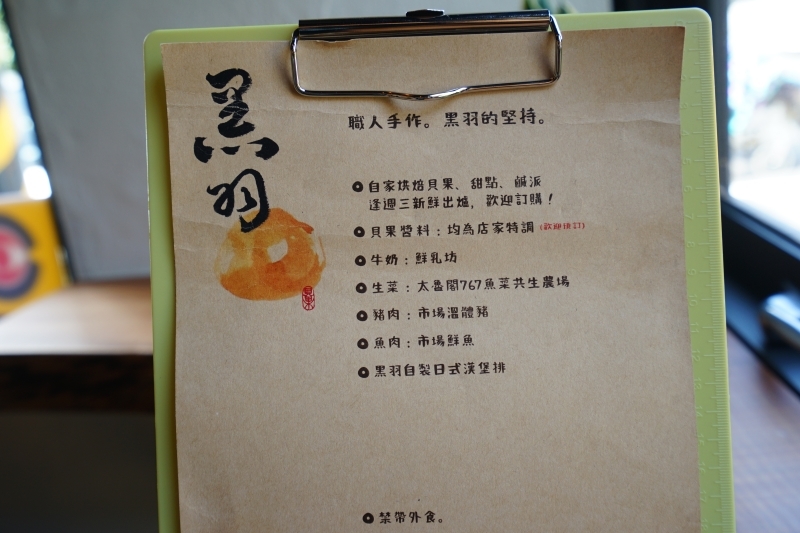 黑羽
職人手作。黑羽的堅持。
自家烘焙貝果、甜點、鹹派
逢週三新鮮出爐，歡迎訂購！
貝果醬料：均為店家特調（歡迎後訂）
牛奶：鮮乳坊
生菜：太魯閣767魚菜共生農場
豬肉：市場溫體豬
魚肉：市場鮮魚
黑羽自製日式漢堡排
禁帶外食。